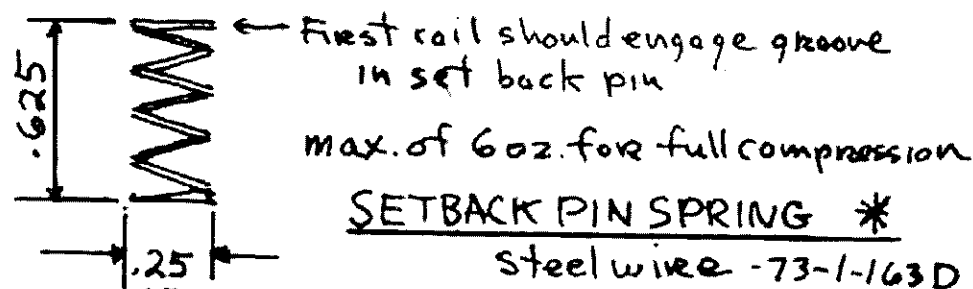 First coil should engage groove
in set back pin
.625
max. of 6 oz. for full compression
SETBACK PIN SPRING *
.25
steel wire -73-1-163D